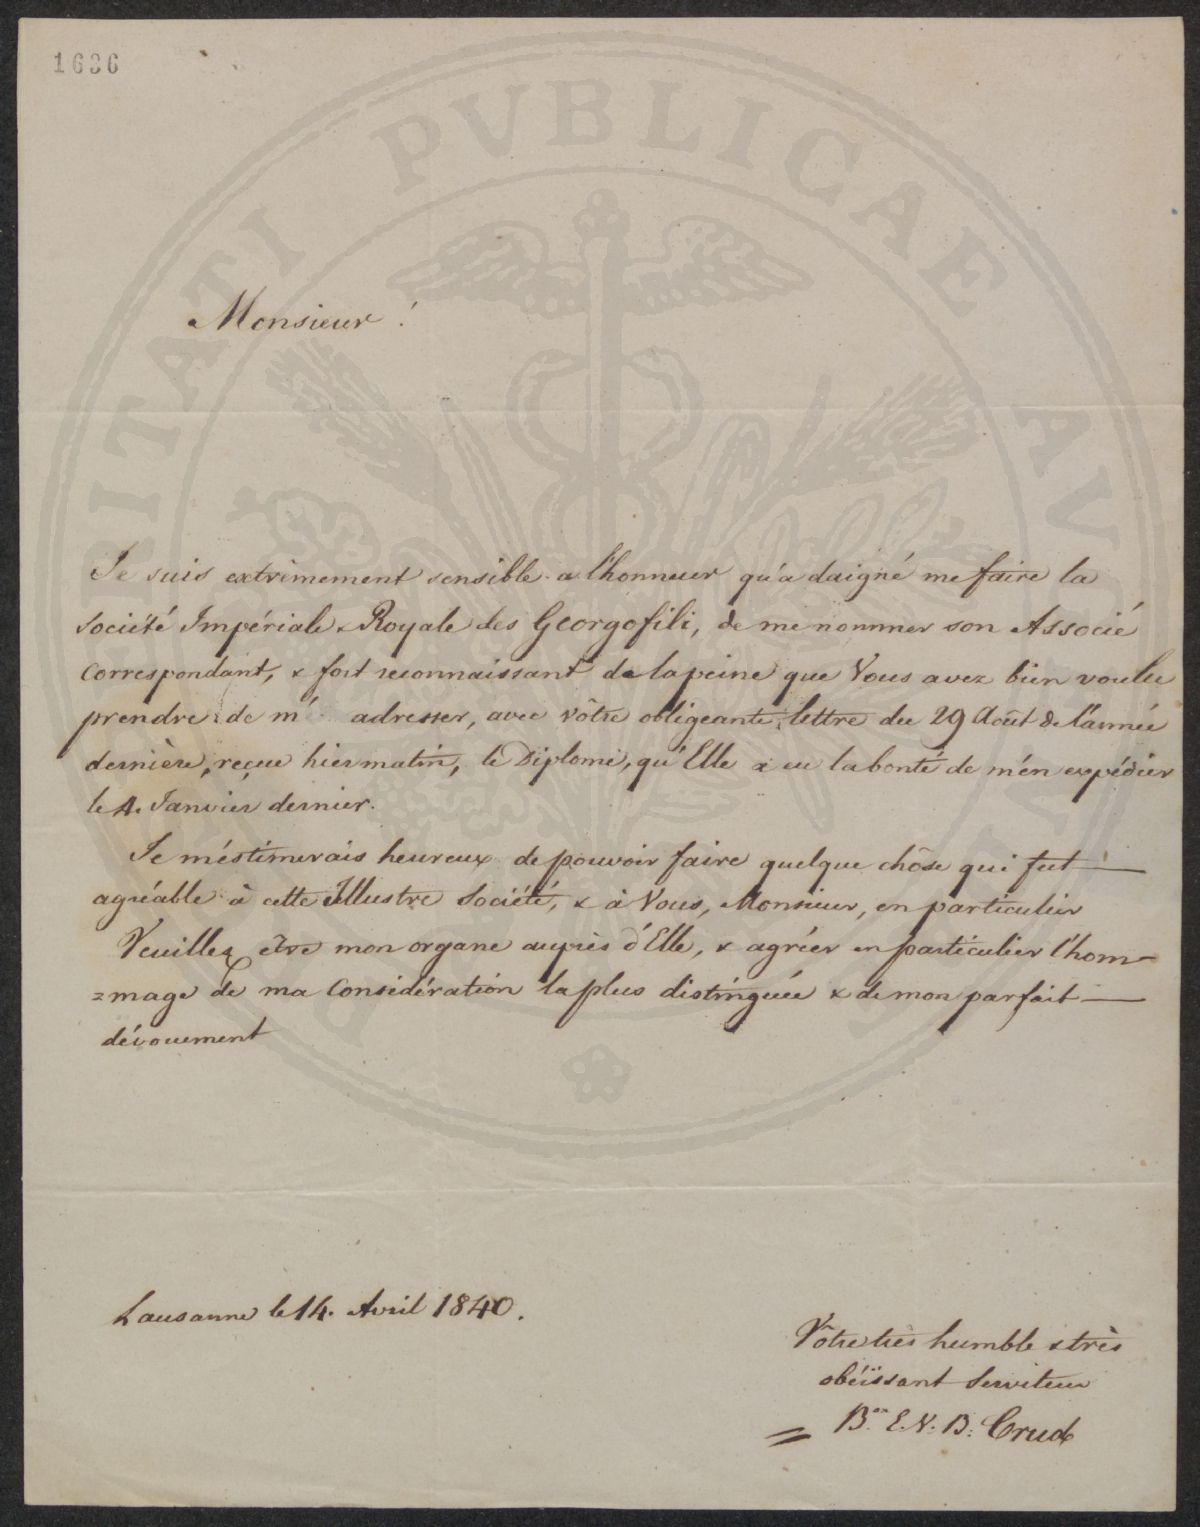 1636
PVBLICAE
Monsieur !
Je suis extrêmement sensible a l'honneur qu'a daigné me faire la
Société Impériale & Royale des Georgofili, de me nommer son Associé
correspondant, & fort reconnaissant de la peine que Vous avez bien voulu
prendre de m' adresser, avec vôtre obligeante lettre du 29 Août de l'année
dernière, reçue hier matin, le Diplome, qu'Elle a eu la bonté de m'en expédier
le 4. Janvier dernier.
Je m'éstimerais heureux de pouvoir faire quelque chôse qui fut
agréable à cette Illustre Société, & à Vous, Monsieur, en particulier
Veuillez être mon organe auprès d'Elle, & agréer en particulier l'hom-
=mage de ma Considération la plus distinguée & de mon parfait
dévouement
Lausanne le 14. Avril 1840.
Vôtre très humble & très
obéïssant Serviteur
Bon. E. V. B. Crud